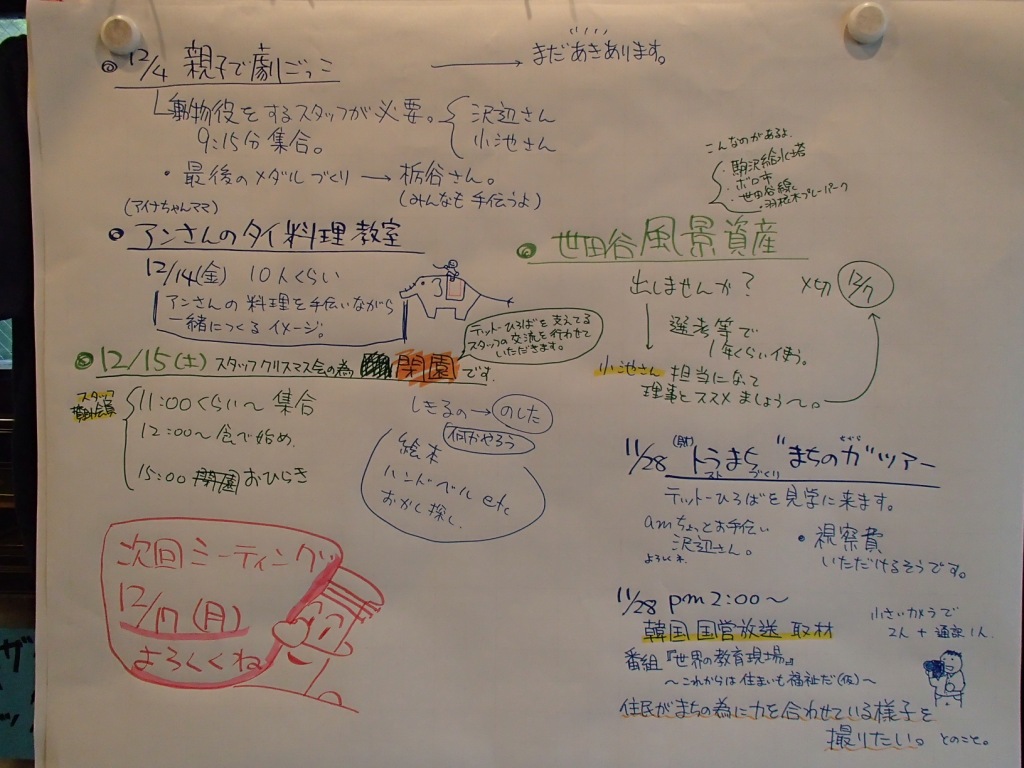 12/4 親子で劇ごっこ → まだあきあります。
動物役をするスタッフが必要。 沢辺さん
9:15分集合。 小池さん
・最後のメダルづくり → 栃谷さん。
(みんなも手伝うよ)
(アイナちゃんママ)
アンさんのタイ料理教室
12/14(金) 10人くらい
アンさんの料理を手伝いながら
一緒につくるイメージ。
12/15(土) スタッフクリスマス会の為 閉園です。
テットーひろばを支えてる
スタッフの交流を行わせて
いただきます。
スタッフ
11:00くらい〜集合
12:00〜食べ始め
15:00 おひらき
しきるの→のした
何かやろう
絵本
ハンドベル etc
おかし探し
次回ミーティング
12/17(月)
よろしくね
こんなのがあるよ
・駒沢給水塔
・ボロ市
・世田谷線
・羽根木プレーパーク
世田谷風景資産
出しませんか? 〆切 12/7
選考等で
1年くらい使う。
小池さん 担当になって
理事とススメましょう〜。
11/28 (財)トラまち "まちのガ"ツアー
スト づくり
テットーひろばを見学に来ます。
amちょっとお手伝い
沢辺さん。
よろしくネ
・視察費
いただけるそうです。
11/28 pm2:00〜
韓国国営放送 取材
小さいカメラで
2人+通訳1人
番組『世界の教育現場』
〜これからは住まいも福祉だ(仮)〜
住民がまちの為に力を合わせている様子を
撮りたい。とのこと。